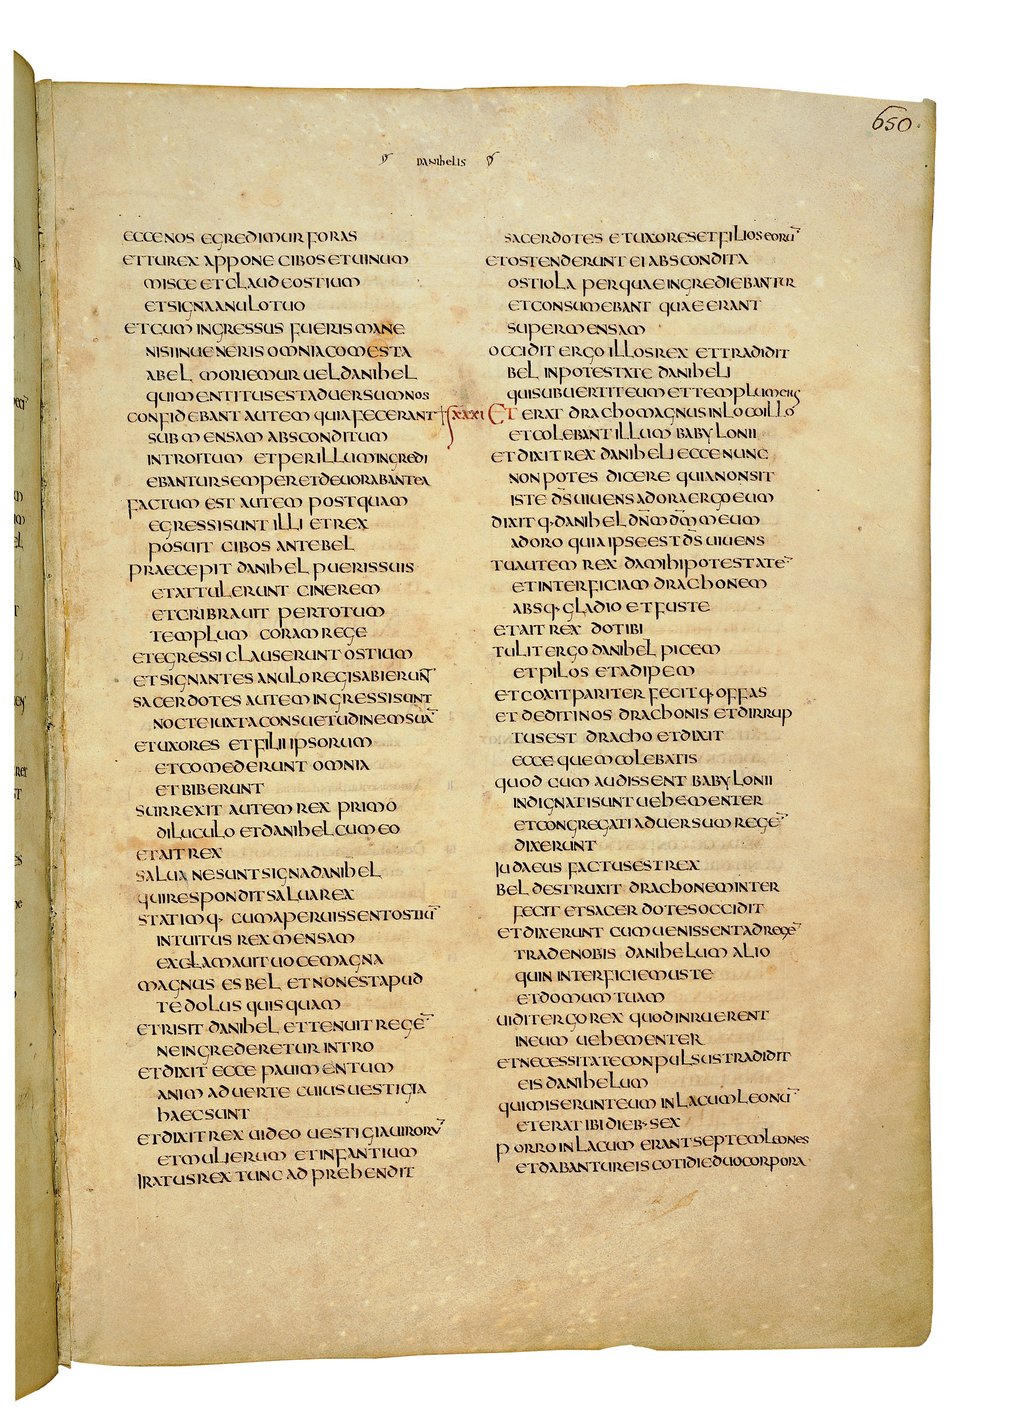 650.
DANIHELIS
ECCE NOS EGREDIMUR FORAS
ET TU REX APPONE CIBOS ET UINUM
MISCE ET CLAUDE OSTIUM
ET SIGNA ANULO TUO
ET CUM INGRESSUS FUERIS MANE
NISI INUENERIS OMNIA COMESTA
A BEL MORIEMUR UEL DANIHEL
QUI MENTITUS EST ADUERSUM NOS
CONFIDEBANT AUTEM QUIA FECERANT
SUB MENSAM ABSCONDITUM
INTROITUM ET PER ILLUM INGREDI
EBANTUR SEMPER ET DEUORABANT EA
FACTUM EST AUTEM POSTQUAM
EGRESSI SUNT ILLI ET REX
POSUIT CIBOS ANTE BEL
PRAECEPIT DANIHEL PUERIS SUIS
ET ATTULERUNT CINEREM
ET CRIBRAUIT PER TOTUM
TEMPLUM CORAM REGE
ET EGRESSI CLAUSERUNT OSTIUM
ET SIGNANTES ANULO REGIS ABIERUN̄
SACERDOTES AUTEM INGRESSI SUNT
NOCTE IUXTA CONSUETUDINEM SUĀ
ET UXORES ET FILII IPSORUM
ET COMEDERUNT OMNIA
ET BIBERUNT
SURREXIT AUTEM REX PRIMO
DILUCULO ET DANIHEL CUM EO
ET AIT REX
SALUA NE SUNT SIGNA DANIHEL
QUI RESPONDIT SALUA REX
STATIMQ· CUM APERUISSENT OSTIŪ
INTUITUS REX MENSAM
EXCLAMAUIT UOCE MAGNA
MAGNUS ES BEL ET NON EST APUD
TE DOLUS QUISQUAM
ET RISIT DANIHEL ET TENUIT REGĒ
NE INGREDERETUR INTRO
ET DIXIT ECCE PAUIMENTUM
ANIMADUERTE CUIUS UESTIGIA
HAEC SUNT
ET DIXIT REX UIDEO UESTIGIA UIRORŪ
ET MULIERUM ET INFANTIUM
IRATUS REX TUNC ADPREHENDIT
SACERDOTES ET UXORES ET FILIOS EORŪ
ET OSTENDERUNT EI ABSCONDITA
OSTIOLA PER QUAE INGREDIEBANTUR
ET CONSUMEBANT QUAE ERANT
SUPER MENSAM
OCCIDIT ERGO ILLOS REX ET TRADIDIT
BEL IN POTESTATE DANIHELI
QUI SUBUERTIT EUM ET TEMPLUM EIUS
XXXI ET ERAT DRACHO MAGNUS IN LOCO ILLO
ET COLEBANT ILLUM BABYLONII
ET DIXIT REX DANIHELI ECCE NUNC
NON POTES DICERE QUIA NON SIT
ISTE D̄S UIUENS ADORA ERGO EUM
DIXITQ· DANIHEL D̄N̄M D̄M̄ MEUM
ADORO QUIA IPSE EST D̄S UIUENS
TU AUTEM REX DA MIHI POTESTATĒ
ET INTERFICIAM DRACHONEM
ABSQ· GLADIO ET FUSTE
ET AIT REX DO TIBI
TULIT ERGO DANIHEL PICEM
ET PILOS ET ADIPEM
ET COXIT PARITER FECITQ· OFFAS
ET DEDIT IN OS DRACHONIS ET DIRRUP
TUS EST DRACHO ET DIXIT
ECCE QUEM COLEBATIS
QUOD CUM AUDISSENT BABYLONII
INDIGNATI SUNT UEHEMENTER
ET CONGREGATI ADUERSUM REGĒ
DIXERUNT
IUDAEUS FACTUS EST REX
BEL DESTRUXIT DRACHONEM INTER
FECIT ET SACERDOTES OCCIDIT
ET DIXERUNT CUM UENISSENT AD REGĒ
TRADE NOBIS DANIHELUM ALIO
QUIN INTERFICIEMUS TE
ET DOMUM TUAM
UIDIT ERGO REX QUOD INRUERENT
IN EUM UEHEMENTER
ET NECESSITATE CONPULSUS TRADIDIT
EIS DANIHELUM
QUI MISERUNT EUM IN LACUM LEONŪ
ET ERAT IBI DIEB· SEX
PORRO IN LACUM ERANT SEPTEM LEONES
ET DABANTUR EIS COTIDIE DUO CORPORA